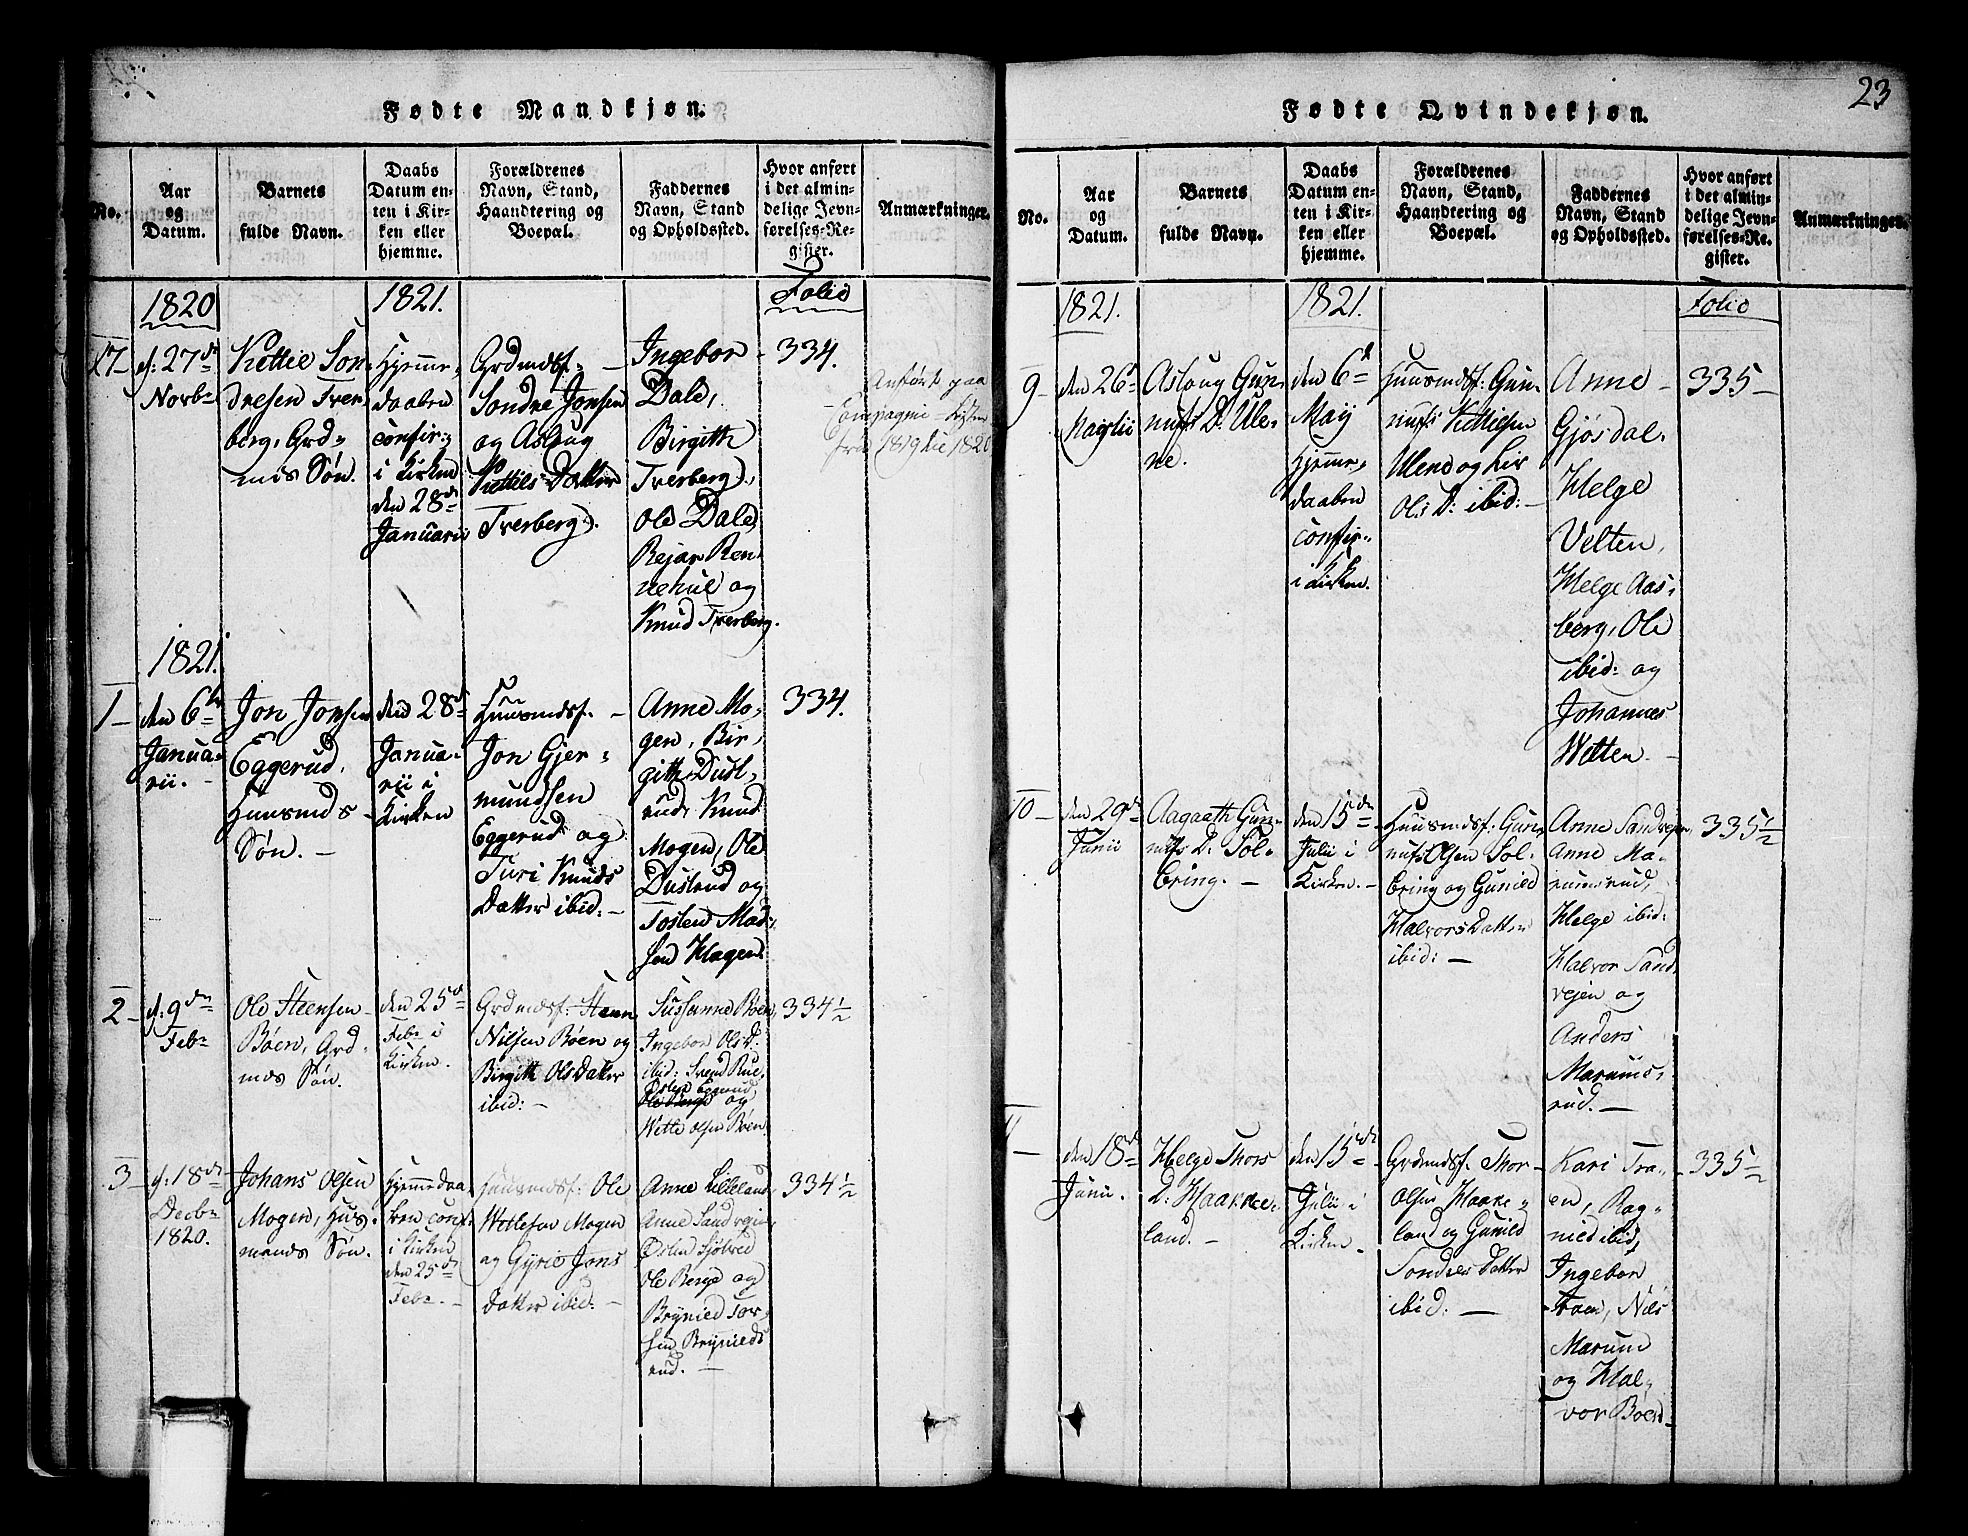 23
Fødte Mandkjøn.
No.
Aar
og
Datum.
Barnets
fulde Navn.
Daabs
Datum en-
ten i Kir-
ken eller
hjemme.
Forældrenes
Navn, Stand,
Haandtering og
Boepæl.
Faddernes
Navn, Stand
og Opholdssted.
Hvor anført
i det almin-
delige Jevn-
førelses-Re-
gister.
Anmærkninger.
1820
1821.
Folio
17
d: 27de
Novbr
Kittil Son
dresen Tver
berg, Grd=
mds Søn.
Hjemme,
daaben
confir:
i Kirken
den 28de
Januarii
Grdmdsf: –
Sondre Jonsen
og Aslaug
Kittils Datter
Tverberg).
Ingebor
Dale,
Birgith
Tverberg),
Ole Dale,
Rejar Ren
nehul og
Knud Tverberg.
334.
Anført paa
Compagnie-Listen
fra 1819 til 1820
1821.
1 –
den 6te
Janua-
rii. –
Jon Jonsen
Eggerud,
Huusmds
Søn. –
den 28de
Janua-
rii i
Kirken
Huusmdsf. –
Jon Gjer=
mundsen
Eggerud og
Turi Knuds
Datter ibid: –
Anne Mo-
gen, Bir,
gith Dusl,
rud, Knud
Mogen, Ole
Duslrud og
Tosten Mad-
sen Hagen
334.
2 –
d: 9den
Febr
Ole Steensen
Bøen, Grd-
mds Søn.
den 25de
Febr i
Kirken.
Grdmdsf: Steen
Nilsen Bøen og
Birgith Ols Datter
ibid: –
Sussanne Bøen,
Ingebor Ols D:
ibid: Svend Rue,
Østen Eggerud
Ole Berge og
Wetle Olsen Bøen.
334 1/2
3 –
d: 18de
Decbr
1820.
Johans Olsen
Mogen, Huus-
mands Søn.
Hjemmedaa
ben conf:
i Kirken
den 25de
Febr. –
Huusmdsf: Ole
Wetlesen Mogen
og Gyrie Jons
Datter ibid: –
Anne Lilleland
Anne Sandvejen
Østen Sjøtved
Ole Berge og
Brynild Tor-
sen Brynilds
rud. –
334 1/2
Fødte Qvindekjøn.
No.
Aar
og
Datum.
Barnets
fulde Navn.
Daabs
Datum en-
ten i Kir-
ken eller
hjemme.
Forældrenes
Navn, Stand,
Haandtering og
Boepæl.
Faddernes
Navn, Stand
og Opholdssted.
Hvor anført
i det almin-
delige Jevn-
førelses-Re-
gister.
Anmærkninger.
1821.
1821.
Folio
9 –
den 26de
Martii
Aslaug Gun
nufs D: Ule-
ne.
den 6te
Maij
Hjemme,
daaben
confir=
i Kirken.
Huusmdsf: Gun
nufs Kittilsen
Ulene og Liv
Ols D: ibid: –
Anne –
Gjøsdal.
Helge
Velten,
Helge Aas-
berg, Ole
ibid: og
Johannes
Welten. –
335 –
10 –
den 29de
Junii
Aagaath Gun
nufs D: Sol-
bring. –
den 15de
Julii i
Kirken. –
Huusmdsf: Gun
nufs Olsen Sol-
bring og Gunild
Halvors Datter
ibid: –
Anne Sandvejen,
Anne Ma-
rumsrud,
Helge ibid:
Halvor Sand
vejen og
Anders
Marums-
rud. –
335 1/2
11 –
den 18de
Junii.
Helge Thors
D: Haakke-
land. –
den 15de
Julii i
Kirken. –
Grdmdsf. Thor
Olsen Haake-
land og Gunild
Sondres Datter
ibid: –
Kari Tra-
en, Rag-
nild ibid,
Ingebor
Traen, Niels
Marum
og Hal-
vor Boen
335 1/2